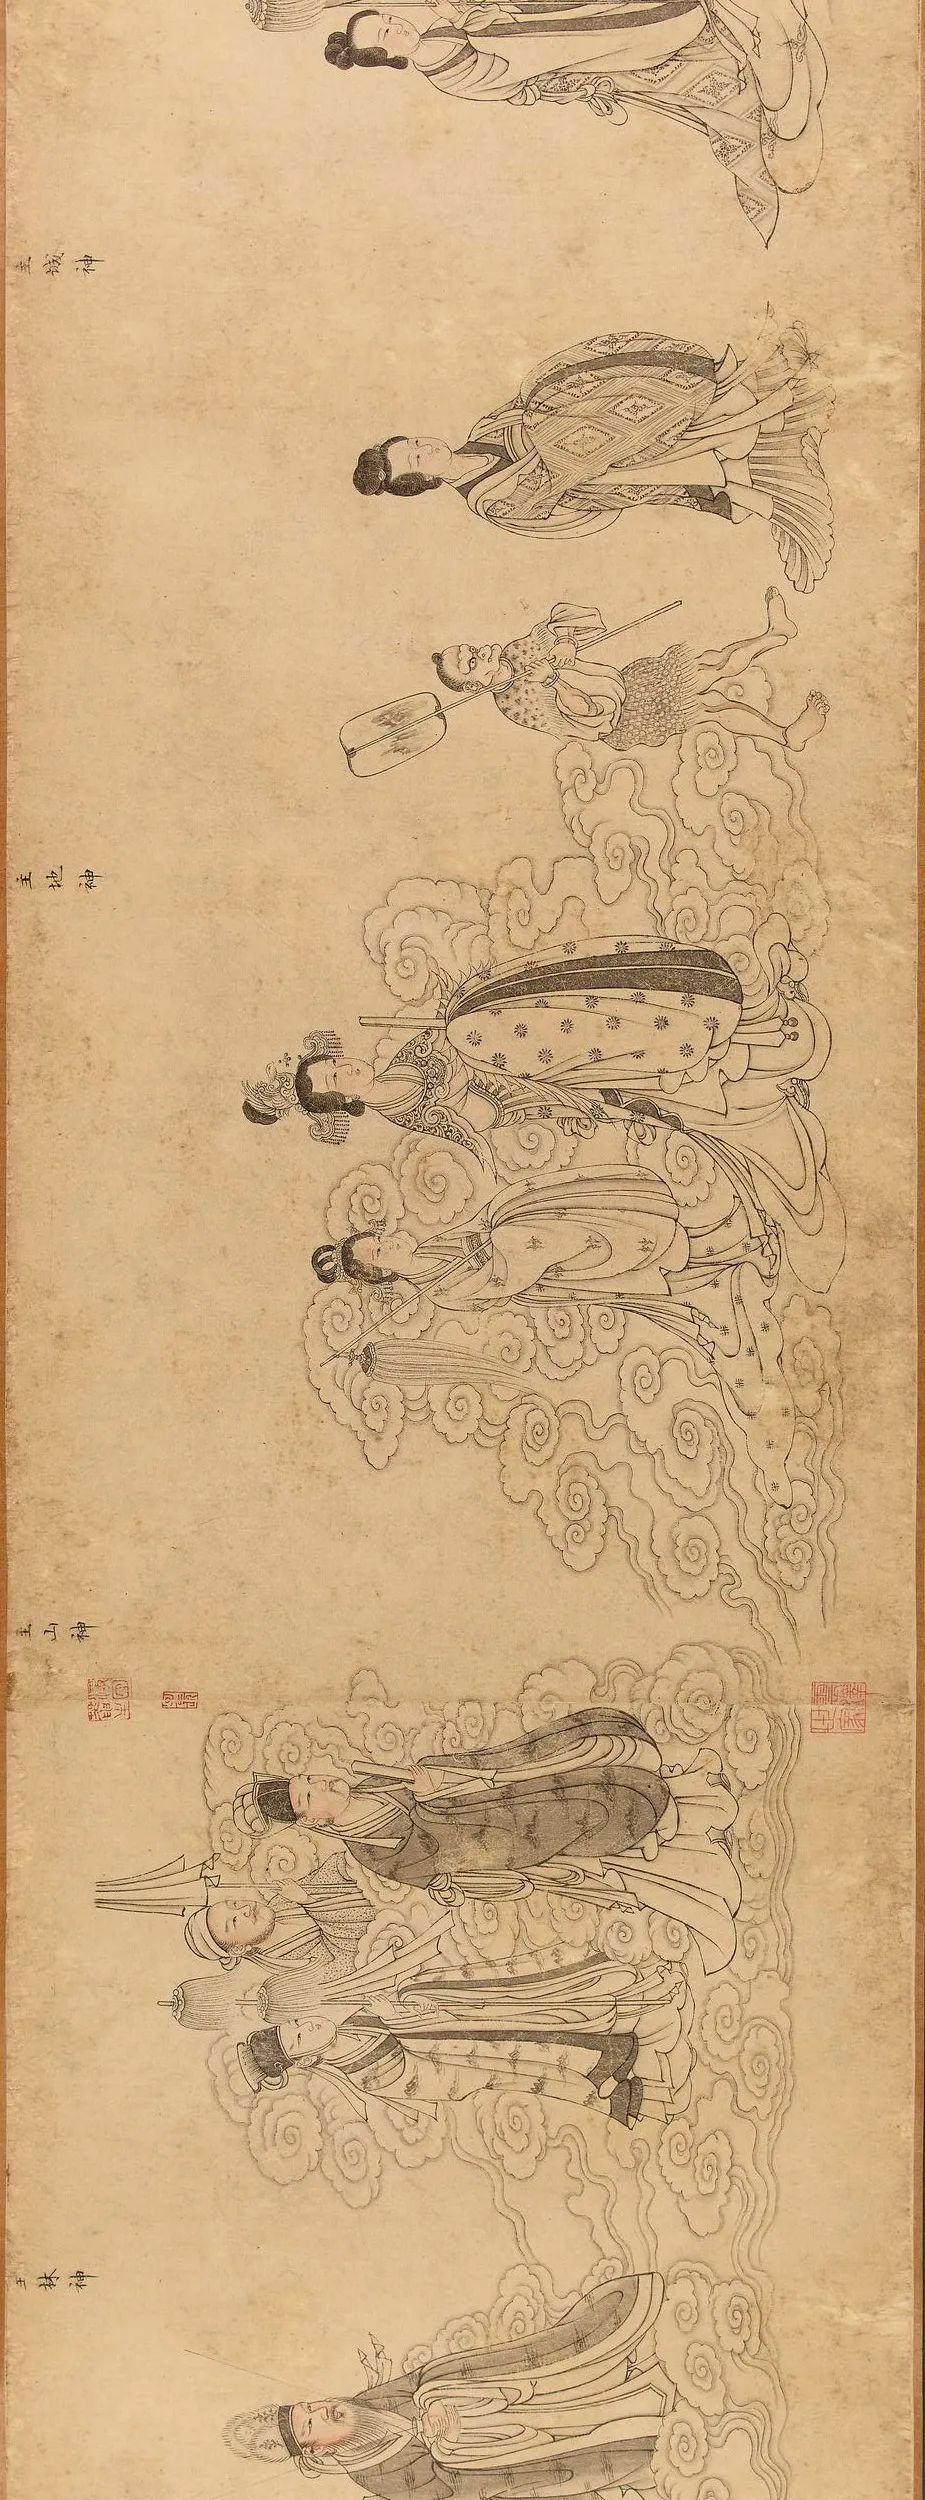 主城神
主地神
主山神
主林神